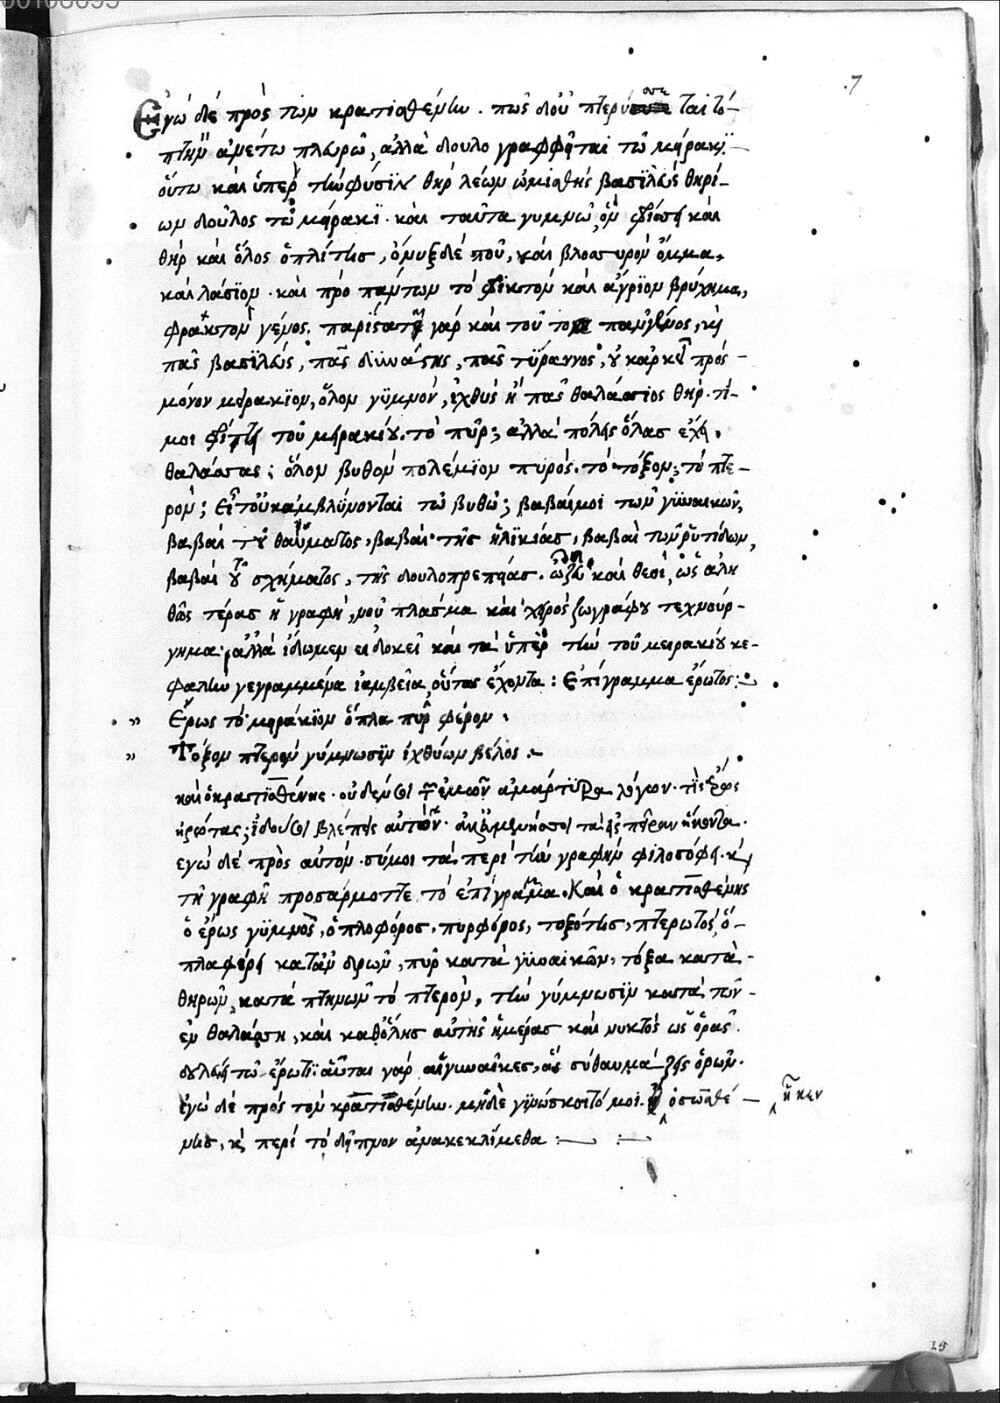 7
Ἐγὼ δὲ πρὸς τὸν κρατισθένην. πῶς δ' οὐ πτερύσσεται τὸ
πτηνὸν ἀμέτω πλωρῶ, ἀλλὰ δουλο γραφῆται τῶ μήρακι
οὕτω καὶ ὑπὲρ τὴν φύσιν θὴρ λέων ὠμισθὴς βασιλεὺς θηρί-
ων δοῦλος τῶ μήρακι. καὶ ταῦτα γυμνῶ, ὃν φρίσση καὶ
θὴρ καὶ ὅλος ὁπλίτης, ὄνυξ δὲ ποῦ, καὶ βλοσυρὸν ὄμμα,
καὶ λάσιον. καὶ πρὸ πάντων τὸ φρικτὸν καὶ ἄγριον βρύχημα,
φρακτὸν γένος. παρίσταται γὰρ καὶ τοῦτο παν γένος, κὶ
πᾶς βασιλεὺς, πᾶς δυνάστης, πᾶς τύραννος, οὐκ ἀρκεῖ πρὸς
μόνον μειράκιον, ὅλον γυμνὸν, ἰχθὺς ἢ πᾶς θαλάσσιος θὴρ. τί-
μοι φρίττει τοῦ μηρακίου. τὸ πῦρ; ἀλλὰ πόλης ὅλασ ἔχη.
θαλάσσας; ὅλον βυθὸν πολέμιον πυρὸς. τὸ τόξον; τὸ πτε-
ρὸν; εἶτ' οὐκ ἀμβλύνονται τῶ βυθῶ; βαβαί μοι τῶν γυναικῶν,
βαβαὶ τοῦ θαύματος, βαβαὶ τῆς ἡλικίας, βαβαὶ τῶν ῥυτίδων,
βαβαὶ τοῦ σχήματος, τῆς δουλοπρεπήας. καὶ θεοὶ, ὡς ἀλη
θῶς τέρας ἡ γραφὴ, νοῦ πλάσμα καὶ χειρὸς ζωγράφου τεχνούρ-
γημα. ἀλλὰ ἴδωμεν εἰ δοκεῖ καὶ τὰ ὑπὲρ τὴν τοῦ μειρακίου κε-
φαλὴν γεγραμμένα ἰαμβεῖα, οὕτως ἔχοντα: Ἐπίγραμμα ἔρωτος:
Ἔρως τὸ μηράκιον ὅπλα πῦρ φέρον.
Τόξον πτερὸν γύμνωσιν ἰχθύων βέλος:
καὶ ὁ κρατισθένης. οὐδέν σοι τῶν ἐμῶν ἀμάρτυρα λόγων. τίς ἔρως
ἠρώτας; ἰδού σοι βλέπης αὐτὸν. τὰ εἰς πεῖραν ἥκοντα.
εγὼ δὲ πρὸς αὐτὸν. σύ μοι τὰ περὶ τὴν γραφὴν φιλοσόφη. κὶ
τῆ γραφῆ προσάρμοττε τὸ ἐπίγραμμα. Καὶ ὁ κρατισθένης
ὁ ἔρως γυμνὸς, ὁπλοφόρος, πυρφόρος, τοξότης, πτερωτὸς, ὅ-
πλα φέρη κατ' ἀνδρῶν, πῦρ κατὰ γυναικῶν, τόξα κατὰ
θηρῶν, κατὰ πτηνῶν τὸ πτερὸν, τὴν γύμνωσιν κατὰ τῶν
ἐν θαλάσση, καὶ καθόλης αὐτῆς ἡμέρας καὶ νυκτὸς ὡς ὁρᾶς.
δουλεύει τῶ ἔρωτι αὗται γὰρ αἱ γυναῖκες, ἃς σὺ θαυμάζης ὁρῶν.
ἐγὼ δὲ πρὸς τὸν κρατισθένην. μηδὲ γινώσκοιτό μοι. ὁ σωσθέ
ἧκεν
νης, κὶ περὶ τὸ δεῖπνον ἀνακεκλίμεθα:
15